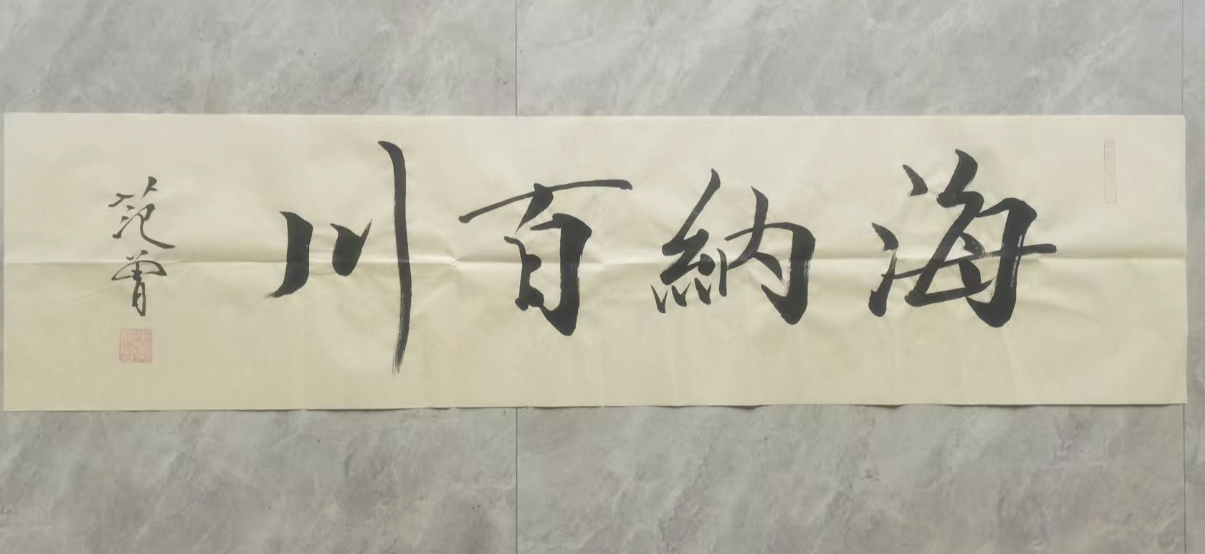 海納百川
范曾